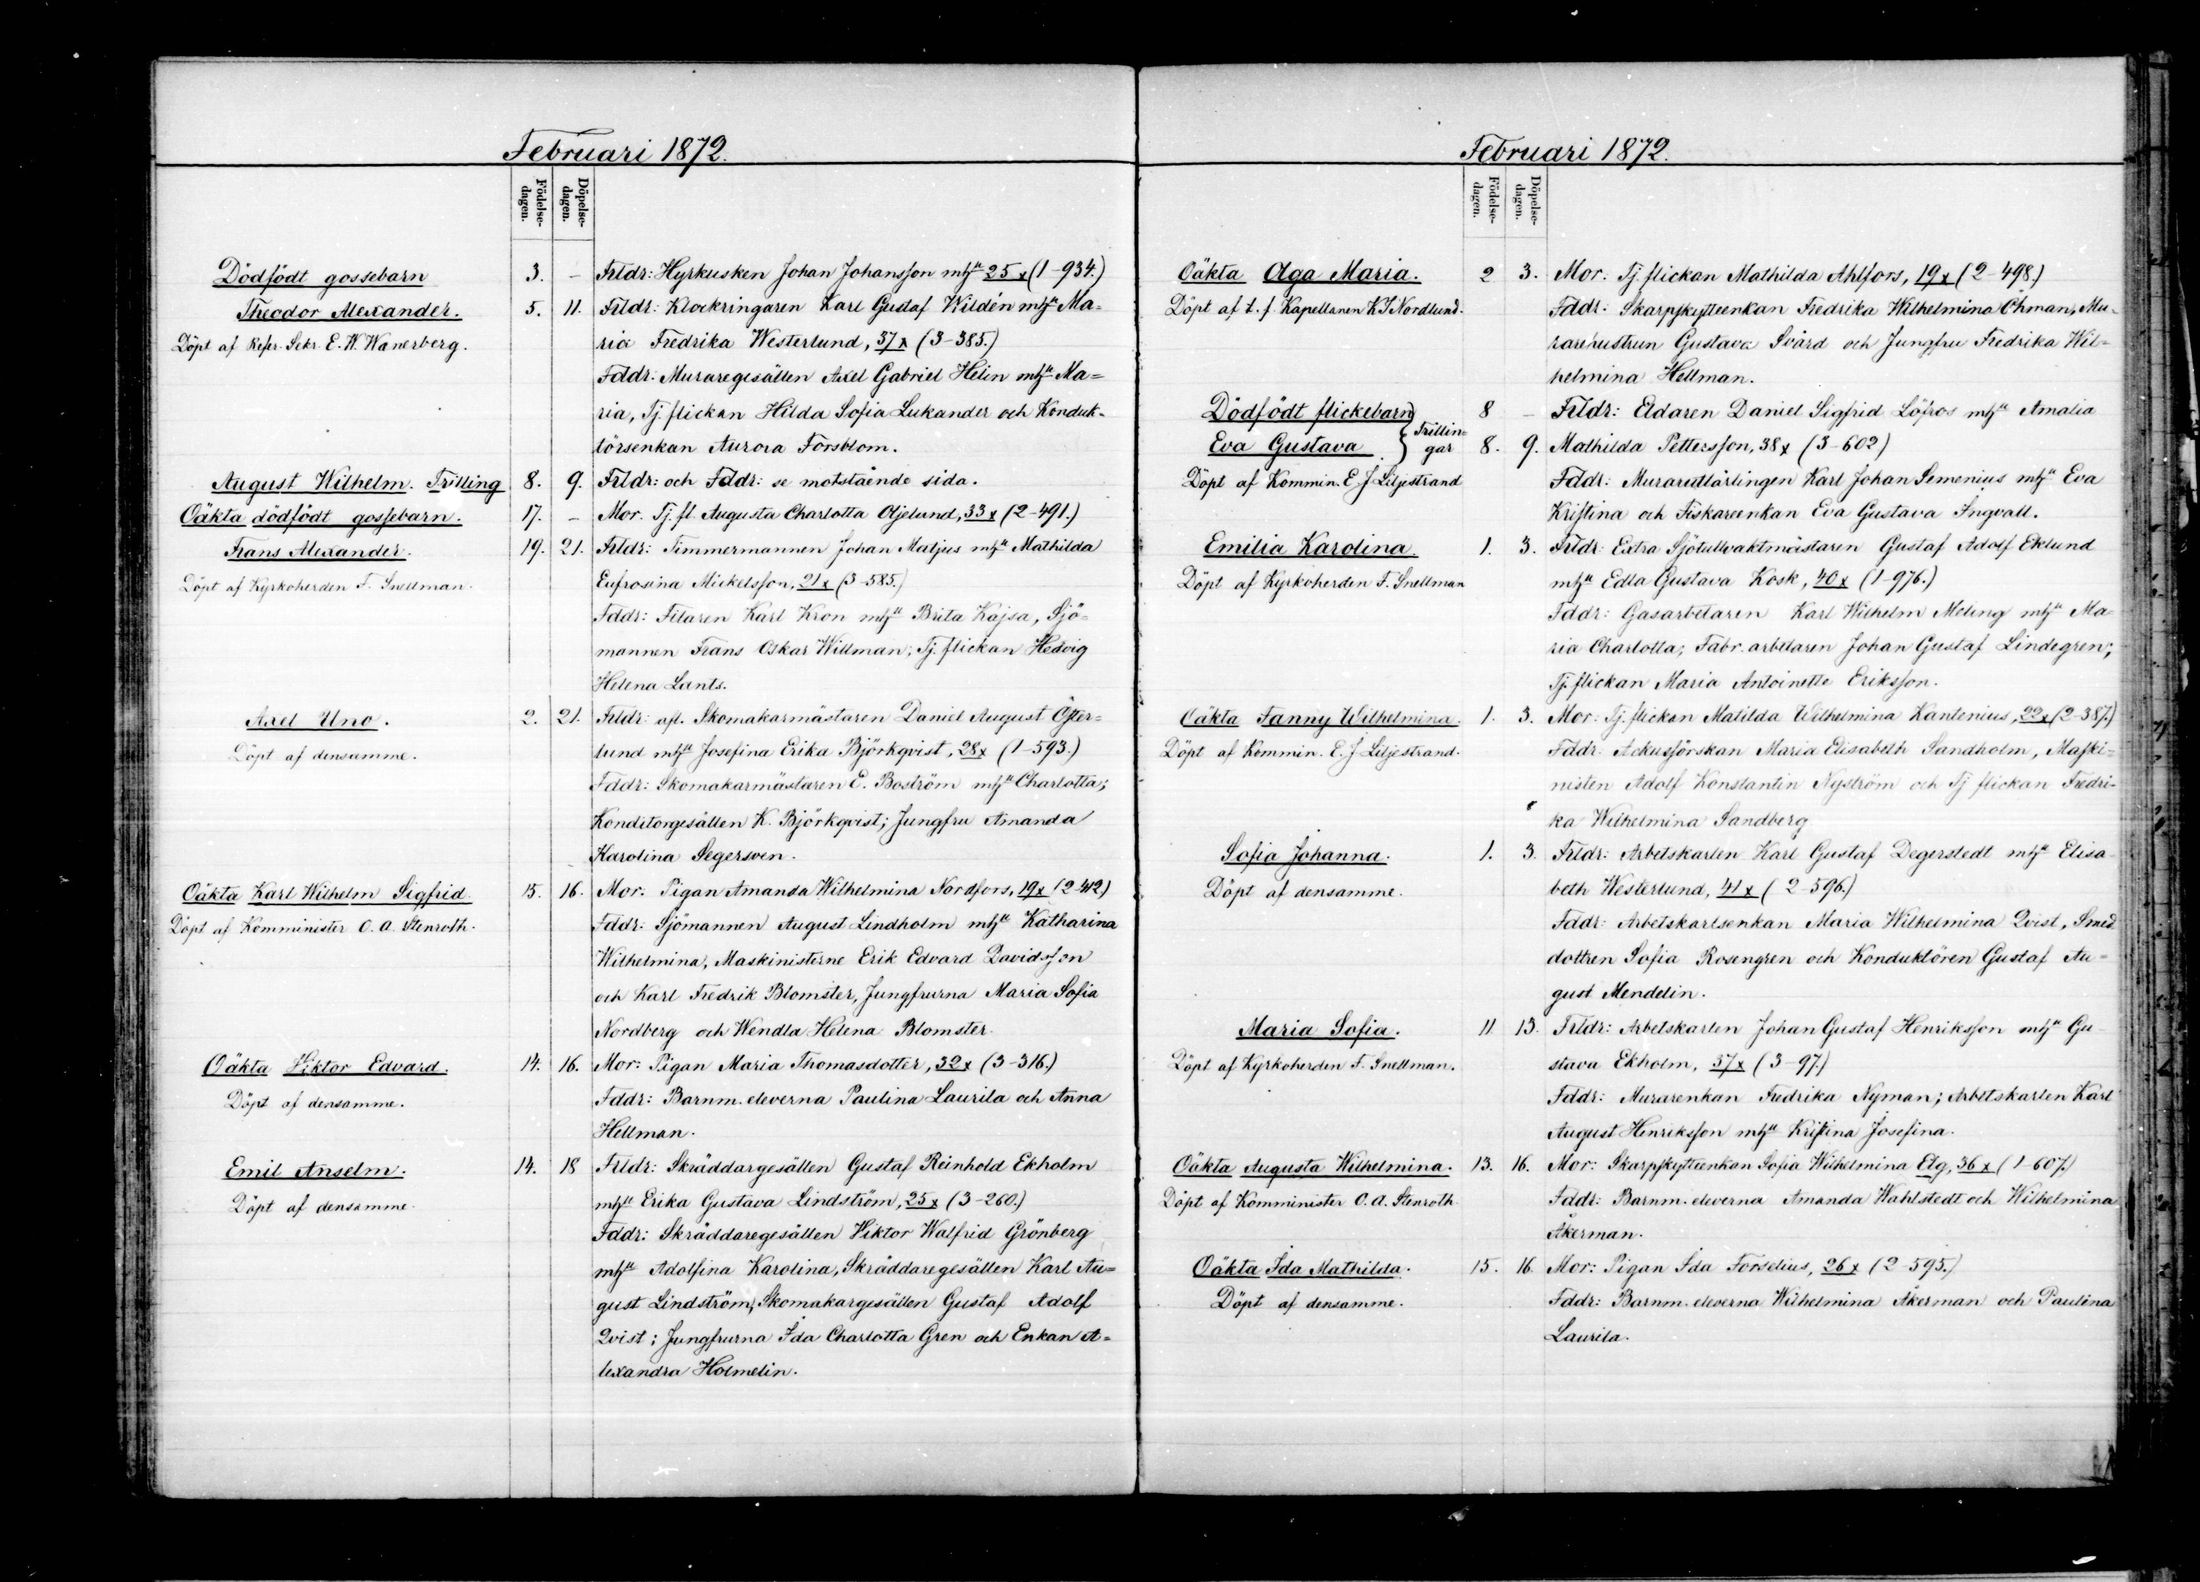 Februari 1872.
Födelse-
dagen.
Döpelse-
dagen.
Dödfödt gossebarn 3. – Frldr: Hyrkusken Johan Johansson mhu 25 x (1-934.)
Theodor Alexander. 5. 11. Frldr: Klockringaren Karl Gustaf Wildén mhu Ma-
Döpt af Refer. Sekr. E. W. Wanerberg. ria Fredrika Westerlund, 37 x (3-385.)
Fddr: Muraregesällen Axel Gabriel Helin mhu Ma=
ria, Tj. flickan Hilda Sofia Lukander och Konduk-
törsenkan Aurora Forsblom.
August Wilhelm. Trilling 8. 9. Frldr: och Fddr: se motstående sida.
Oäkta dödfödt gossebarn. 17. – Mor. Tj. fl. Augusta Charlotta Öjelund, 33 x (2-491.)
Frans Alexander. 19. 21. Frldr: Timmermannen Johan Matjus mhu Mathilda
Döpt af Kyrkoherden F. Snellman. Eufrosina Mickelsson, 21 x (3-585.)
Fddr: Filaren Karl Kron mhu Brita Kajsa, Sjö-
mannen Frans Oskar Willman; Tj. flickan Hedvig
Helena Lants.
Axel Uno. 2. 21. Frldr: afl. Skomakarmästaren Daniel August Öster-
Döpt af densamme. lund mhu Josefina Erika Björkqvist, 28 x (1-593.)
Fddr: Skomakarmästaren E. Boström mhu Charlotta;
Konditorgesällen K. Björkqvist; Jungfru Amanda
Karolina Segersven.
Oäkta Karl Wilhelm Sigfrid. 15. 16. Mor: Pigan Amanda Wilhelmina Nordfors, 19 x (2-412)
Döpt af Komminister O. A. Stenroth. Fddr: Sjömannen August Lindholm mhu Katharina
Wilhelmina, Maskinisterne Erik Edvard Davidsson
och Karl Fredrik Blomster, Jungfrurna Maria Sofia
Nordberg och Wendla Helena Blomster.
Oäkta Viktor Edvard. 14. 16. Mor: Pigan Maria Thomasdotter, 32 x (3-316.)
Döpt af densamme. Fddr: Barnm. eleverna Paulina Laurila och Anna
Hellman.
Emil Anselm. 14. 18 Frldr: Skräddargesällen Gustaf Reinhold Ekholm
Döpt af densamme. mhu Erika Gustava Lindström, 25 x (3-260.)
Fddr: Skräddaregesällen Viktor Walfrid Grönberg
mhu Adolfina Karolina, Skräddaregesällen Karl Au=
gust Lindström; Skomakargesällen Gustaf Adolf
Qvist; Jungfrurna Ida Charlotta Gren och Enkan A=
lexandra Holmelin.
Februari 1872.
Födelse-
dagen.
Döpelse-
dagen.
Oäkta Olga Maria. 2 3. Mor. Tj. flickan Mathilda Ahlfors, 19 x (2-498.)
Döpt af t. f. Kapellanen K I Nordlund. Fddr: Skarpskytteenkan Fredrika Wilhelmina Öhman, Mu-
rarehustrun Gustava Svärd och Jungfru Fredrika Wil=
helmina Hellman.
Dödfödt flickebarn 8 – Frldr: Eldaren Daniel Sigfrid Löfros mhu Amalia
Eva Gustava } Trillin=
gar 8. 9. Mathilda Pettersson, 38 x (3-602)
Döpt af Kommin. E. J. Liljestrand Fddr: Murarelärlingen Karl Johan Semenius mhu Eva
Kristina och Fiskareenkan Eva Gustava Ingvall.
Emilia Karolina. 1. 3. Frldr: Extra Sjötullvaktmästaren Gustaf Adolf Eklund
Döpt af Kyrkoherden F. Snellman mhu Edla Gustava Kosk, 40 x (1-976.)
Fddr: Gasarbetaren Karl Wilhelm Meling mhu Ma-
ria Charlotta; Fabr. arbetaren Johan Gustaf Lindegren;
Tj. flickan Maria Antoinette Eriksson.
Oäkta Fanny Wilhelmina. 1. 3. Mor: Tj. flickan Matilda Wilhelmina Kantenius, 22 x (2-387.)
Döpt af Kommin. E. J. Liljestrand. Fddr: Ackusjörskan Maria Elisabeth Sandholm, Maski-
nisten Adolf Konstantin Nyström och Tj flickan Fredri-
ka Wilhelmina Sandberg
Sofia Johanna. 1. 3. Frldr: Arbetskarlen Karl Gustaf Degerstedt mhu Elisa
Döpt af densamme. beth Westerlund, 41 x (2-596.)
Fddr: Arbetskarlsenkan Maria Wilhelmina Qvist, Smed
dottren Sofia Rosengren och Konduktören Gustaf Au=
gust Mendelin.
Maria Sofia. 11 13. Frldr: Arbetskarlen Johan Gustaf Henriksson mhu Gu
Döpt af Kyrkoherden F. Snellman. stava Ekholm, 37 x (3-97.)
Fddr: Murarenkan Fredrika Nyman; Arbetskarlen Karl
August Henriksson mhu Kristina Josefina.
Oäkta Augusta Wilhelmina. 13. 16. Mor: Skarpskytteenkan Sofia Wilhelmina Elg, 36 x (1-607.)
Döpt af Komminister O. A. Stenroth Fddr: Barnm. eleverna Amanda Wahlstedt och Wilhelmina
Åkerman.
Oäkta Ida Mathilda. 15. 16. Mor: Pigan Ida Forselius, 26 x (2-595.)
Döpt af densamme. Fddr: Barnm. eleverna Wilhelmina Åkerman och Paulina
Laurila.